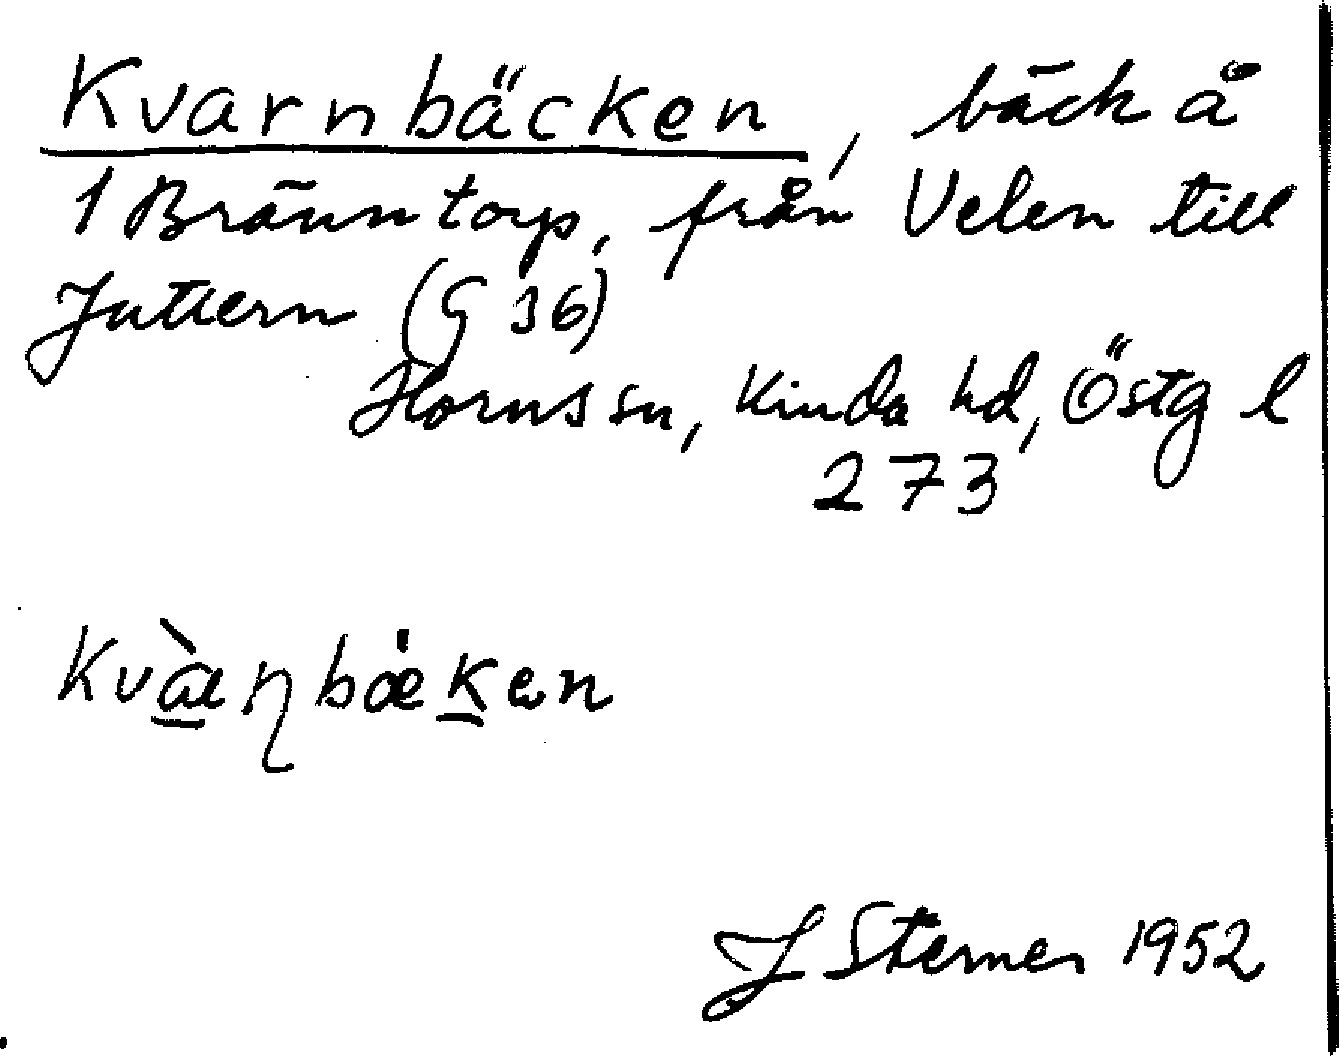 Kvarnbäcken, bäck å
1 Bränntorp, från Velen till
Juttern (G 36)
Horns sn, Kinda hd, Östg l
273
J Sterner 1952